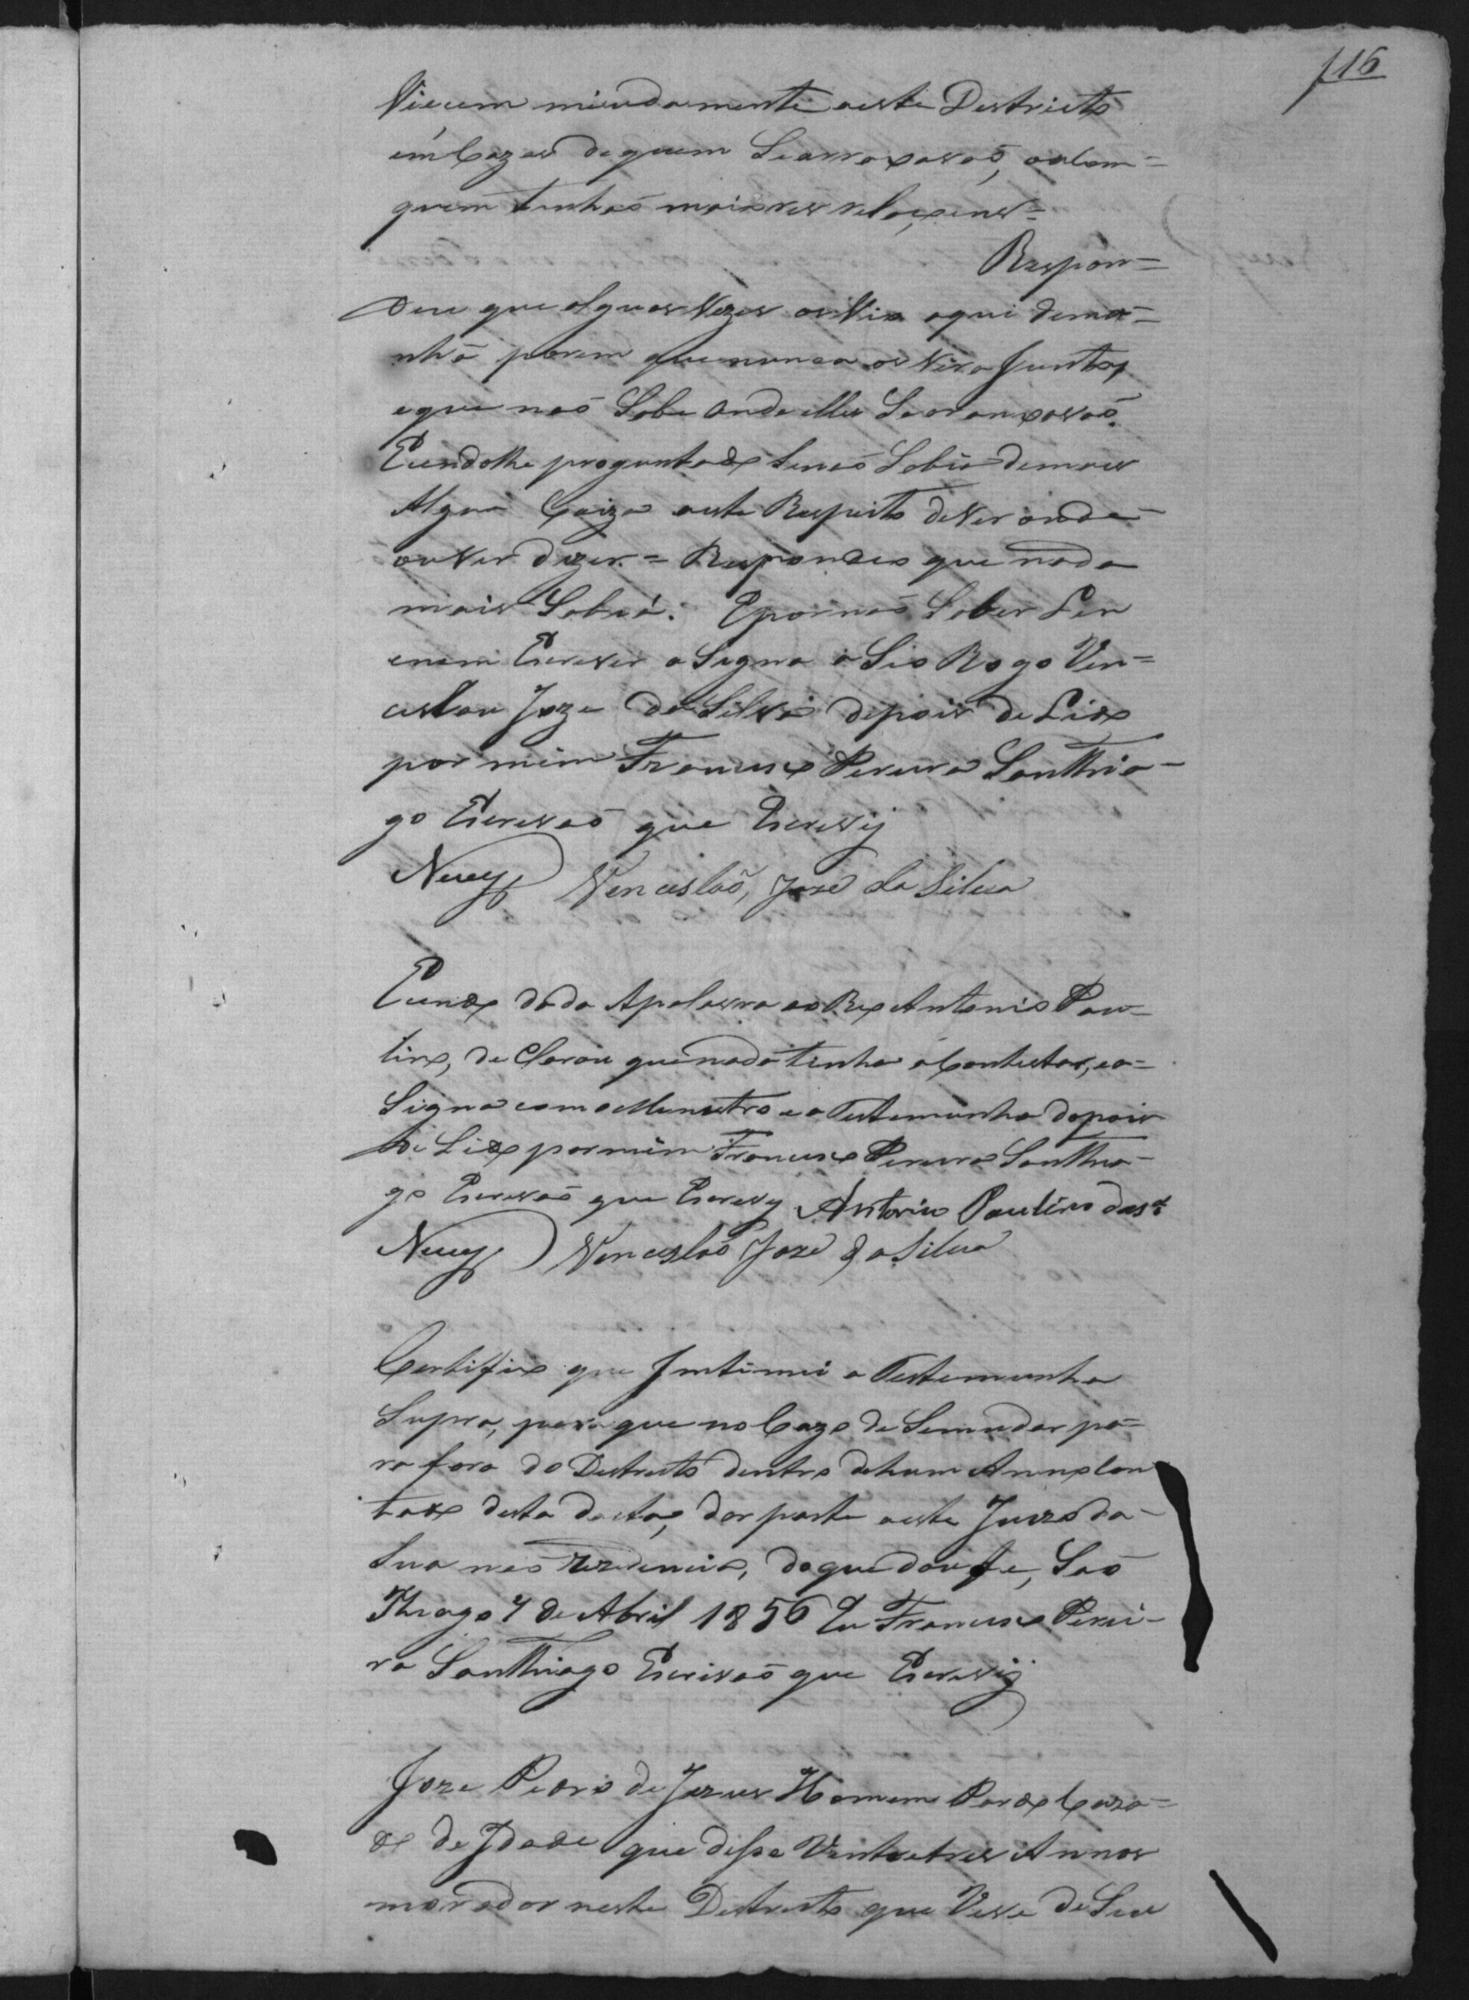 116
Viecem miudamente aeste Destricto
em Cazas de quem Searranxavaõ, ou com=
quem tinhaõ maiores relaçoens=
Respon=
deu que alguas Vezes os Via aqui dema=
nhã porem que nunca os Vira Juntos,
eque naõ Sabe onde elles Searanxavaõ.
Esendolhe preguntado senaõ Sabia demais
Algua Coiza aeste Respeito de Ver ou de
ouVer dizer.= Respondeo que nada
mais Sabiá. Epornaõ Saber Ler
enem Escrever aSigna a Seo Rogo Ven=
ceslau Joze da Silva depois de Lido
por mim Francisco Pereira Santthia-
go Escrivaõ que Escrevij
Neves Venceslaõ, Joze da Silva
Esendo dada Apalavra ao Reo Antonio Pau-
lino, de Clarou que nada tinha a Contestar, ea=
Signa com o Menistro e a Testemunha depois
de Lido por mim Francisco Pereira Santthia-
go Escrivaõ que Escrevij Antonio Paulino das.ª
Neves Venceslaõ Joze da Silva
Certifico que Intimei a Testemunha
Supra, para que no Cazo de Semudar pa-
ra fora do Destricto dentro de hum Anno Con
tado desta data, dar parte aeste Juizo da-
Sua nes rezidencia, do que dou fe, Saõ
Thiago 7 de Abril 1856 Eu Francisco Perei-
ra Santthiago Escrivaõ que Escrevij
Joze Pedro de Jezus Homem Pardo Caza=
do de Idade que disse Vinte e tres Annos
morador neste Destricto que Vive de Seu